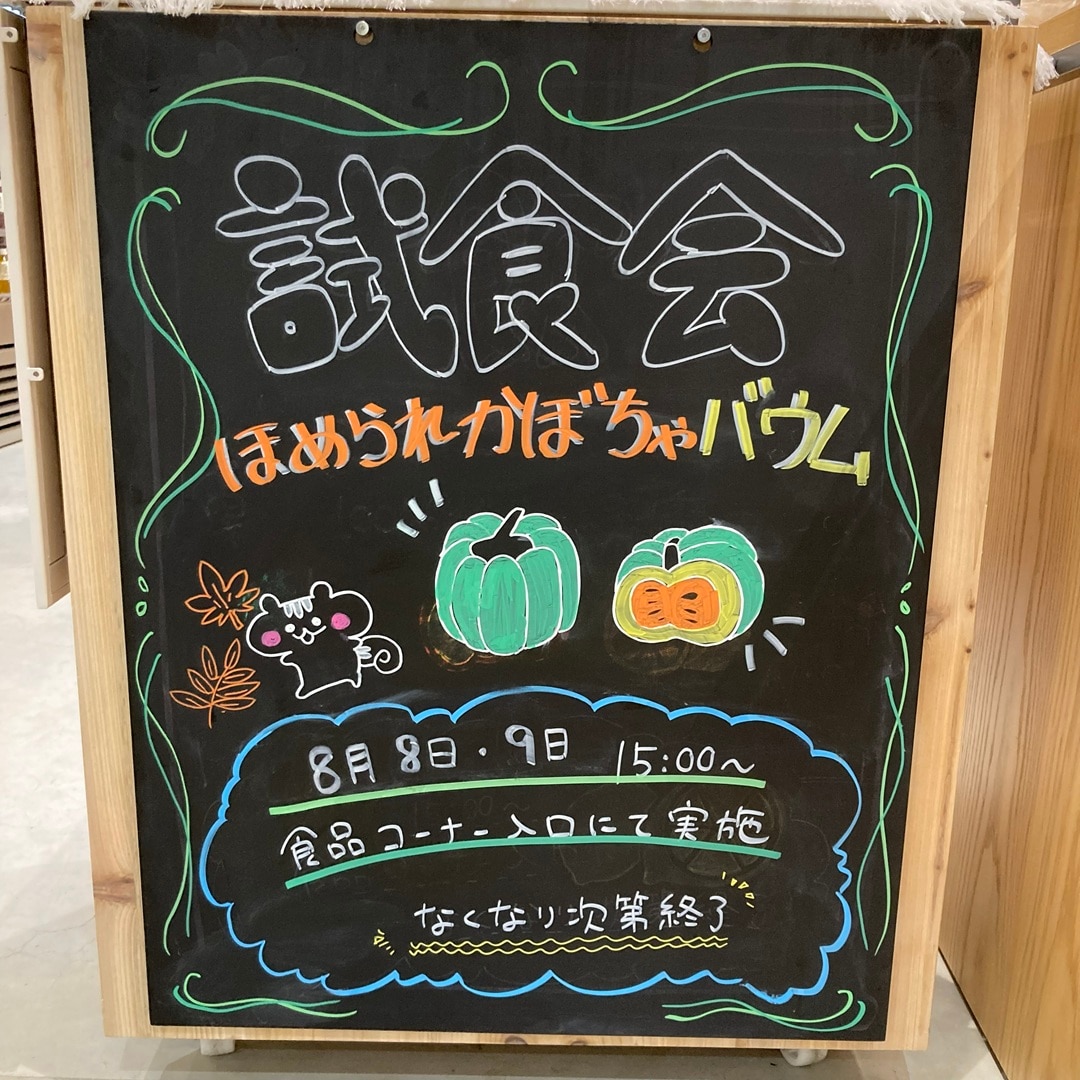 試食会
ほめられかぼちゃバウム
8月8日・9日 15:00～
食品コーナー入口にて実施
なくなり次第終了